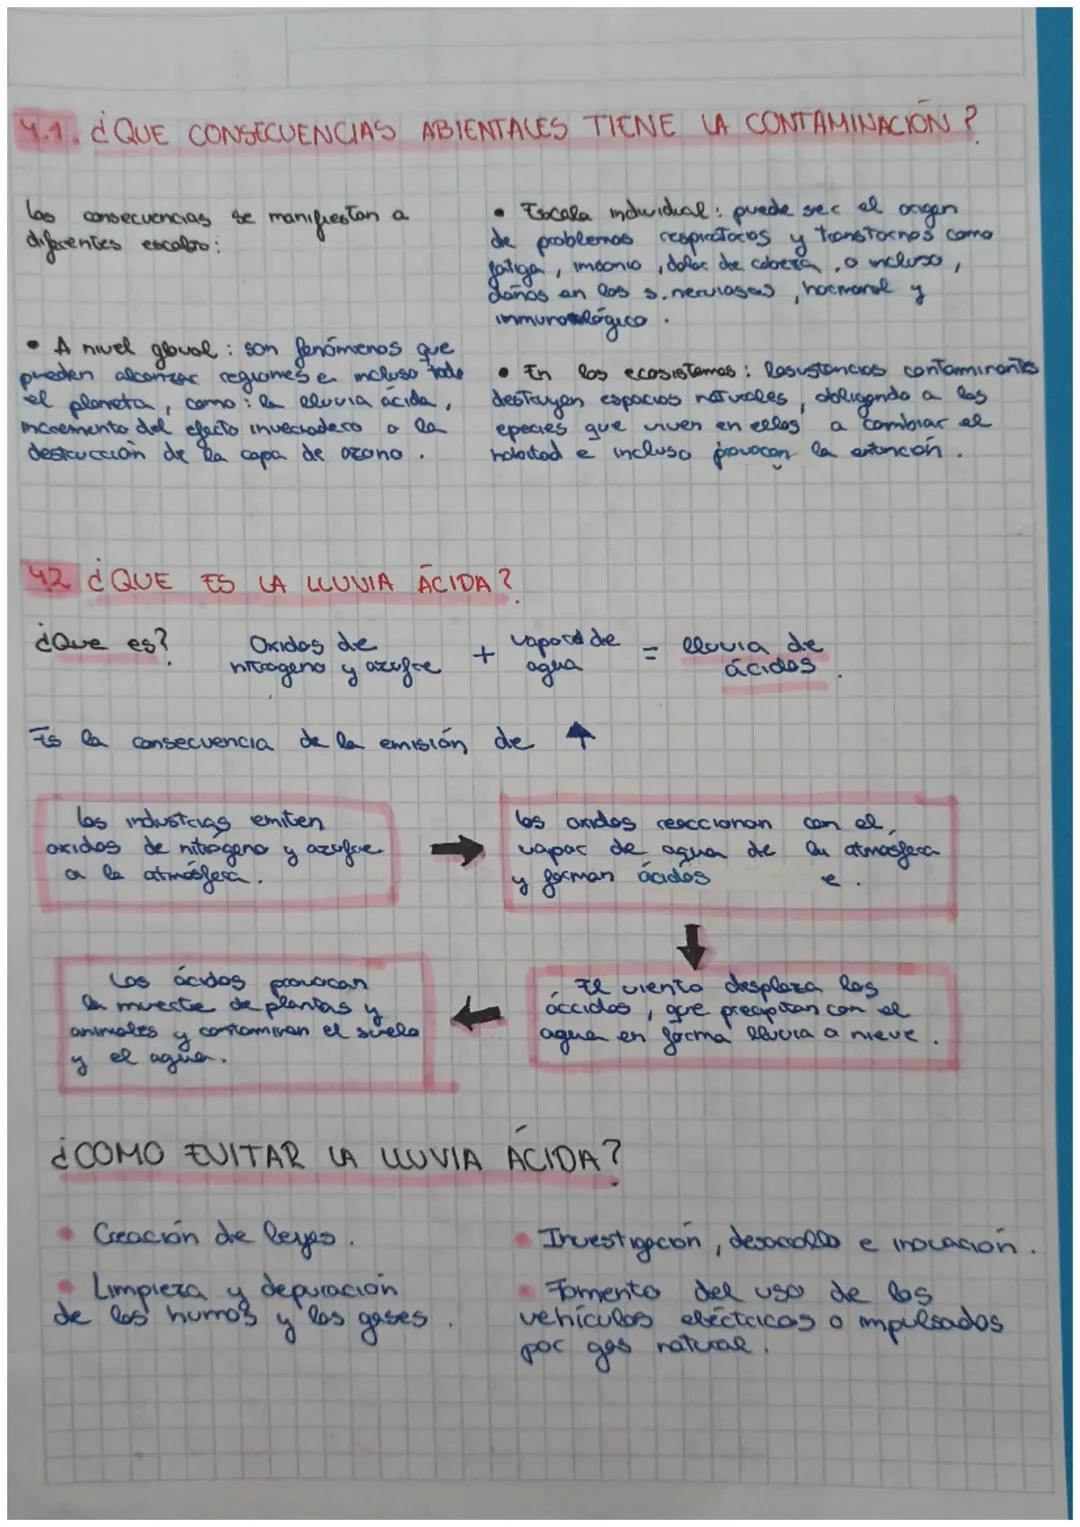 4.1. ¿QUE CONSECUENCIAS ABIENTALES TIENE LA CONTAMINACIÓN?
Las consecuencias se manifiestan a
diferentes escalas:
• A nivel gloval: son fenómenos que
pueden alcanzar regiones e incluso todo
el planeta, como: la lluvia ácida,
incremento del efecto invernadero o la
destrucción de la capa de ozono.
• Escala individual: puede ser el origen
de problemas respiratorios y transtornos como
fatiga, insonio, dolor de cabeza, o incluso,
daños en los s. nerviosos, hormonal y
immunológico.
• En los ecosistemas: las sustancias contaminantes
destruyen espacios naturales, obligando a las
epecies que viven en ellos a cambiar el
habitad e incluso provocan la extinción.
4.2 ¿QUE ES LA LLUVIA ÁCIDA?
¿Que es?
Oxidos de
nitrogeno y azufre
+
vapor de
agua
=
lluvia de
ácidos.
Es la consecuencia de la emisión de ↑
Las industrias emiten
oxidos de nitrógeno y azufre
a la atmósfera.
los oxidos reaccionan con el
vapor de agua de la atmosfera
y forman ácidos e.
El viento desplaza los
áccidos, que precipitan con el
agua en forma lluvia o nieve.
Los ácidos provocan
la muerte de plantas y
animales y contaminan el suelo
y el agua.
¿COMO EVITAR LA LLUVIA ÁCIDA?
• Creación de leyes.
• Limpieza y depuración
de los humos y los gases.
• Investigación, desarrollo e inovación.
• Fomento del uso de los
vehículos eléctricos o impulsados
por gas natural.